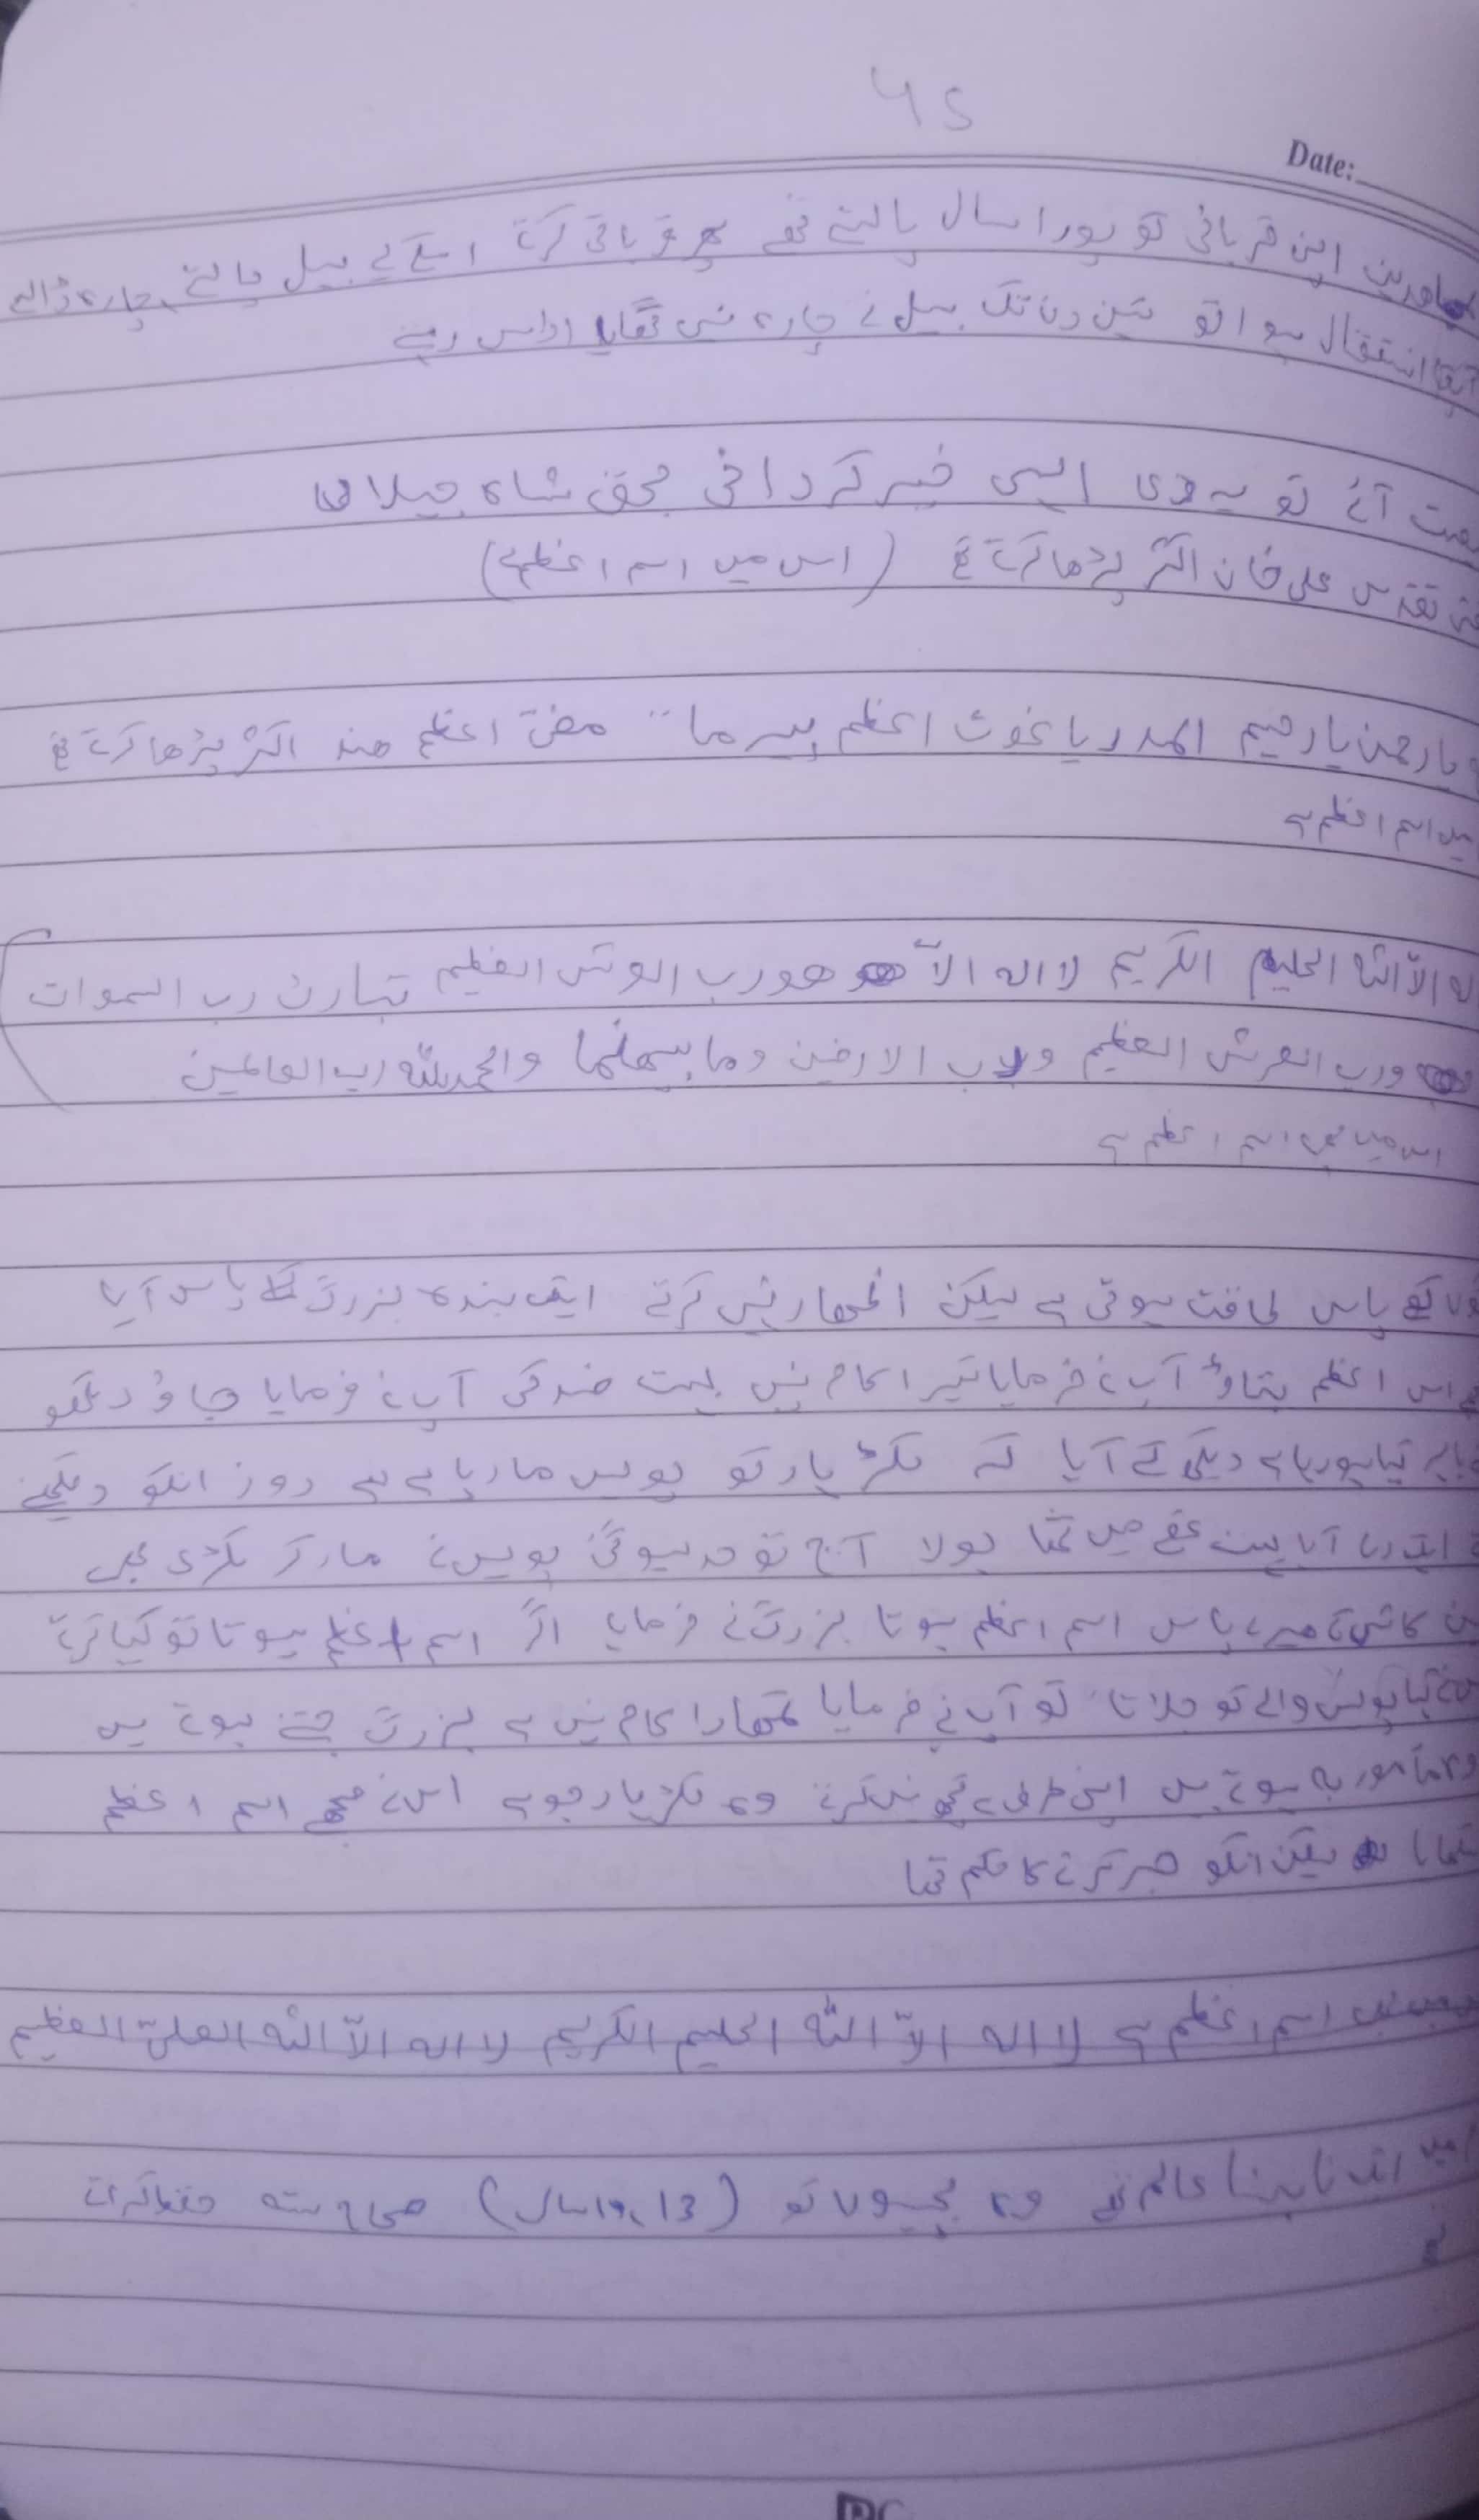 45
Date:
اپنی قربانی کو پورا سال پالتے تھے پھر قربانی کرتے اسکے لیے بیل پالتے چارہ ڈالتے
انتقال ہوا تو تین دن تک بیل نے چارہ نہیں کھایا اداس رہے
آئے تو پڑھ ایسی خیر گردانی بحق شاہ جیلانی
تقدس علی خان اکثر پڑھا کرتے تھے (اس میں اسم اعظم ہے)
یا رحمن یا رحیم المدد یا غوث اعظم پیر ما" مفتی اعظم ھند اکثر پڑھا کرتے تھے
میں اسم اعظم ہے
الہ الّا اللہ الحلیم الکریم لا الہ الّا ھو رب العرش العظیم تبارک رب السموات
ورب العرش العظیم ورب الارضین وما بینھما والحمدللہ رب العالمین
اس میں بھی اسم اعظم ہے
کے پاس طاقت ہوتی ہے لیکن اظھار نہیں کرتے ایک بندہ بزرگ کے پاس آیا
اسم اعظم بتاؤ آپ نے فرمایا تیرا کام نہیں بہت ضد کی آپ نے فرمایا جاؤ دیکھو
باہر کیا ہو رہا ہے دیکھ کے آیا کہ لکڑ ہار کو پولیس مار رہا ہے روز انکو دیکھنے
ایک دن آیا بہت غصے میں تھا بولا آج تو حد ہو گئی پولیس نے مار کر لکڑی بھی
کاش کے میرے پاس اسم اعظم ہوتا بزرگ نے فرمایا اگر اسم اعظم ہوتا تو کیا کرتے
کہا پولیس والے کو جلاتا تو آپ نے فرمایا تمھارا کام نہیں ہے بزرگ جتنے ہوتے ہیں
وہ مامور بہ ہوتے ہیں اپنی طرف سے کچھ نہیں کرتے وہ لکڑ ہار جو ہے اس نے مجھے اسم اعظم
سکھایا لیکن انکو صبر کرنے کا حکم تھا
اسم اعظم ہے لا الہ الّا اللہ الحلیم الکریم لا الہ الّا اللہ العلیّ العظیم
میں ایک نابینا عالم تھے وہ بچیوں کو (13، 10 سال) صحاح ستہ حفظ کراتے